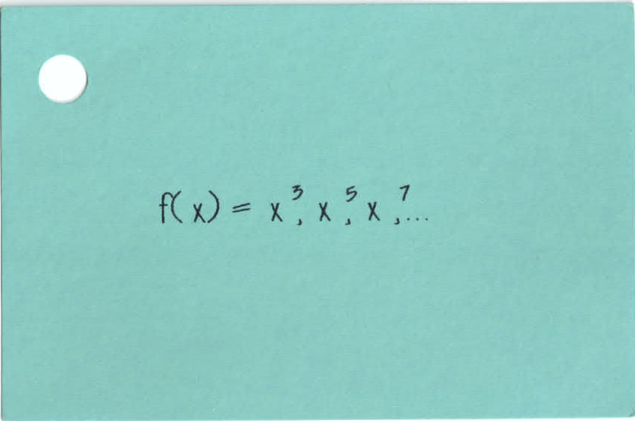 f(x) = x³, x⁵, x⁷,...